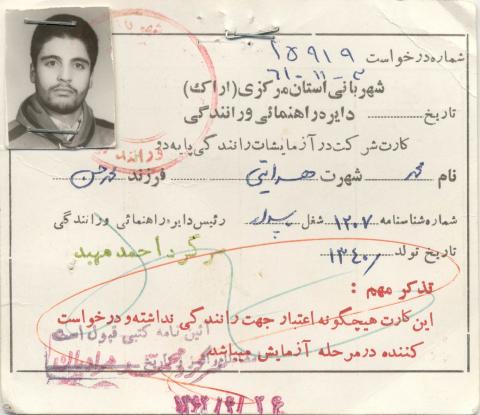 شماره درخواست ۱۵۹۱۹
۶۱-۱۱-۳
شهربانی استان مرکزی (اراک)
تاریخ دایره راهنمائی ورانندگی
کارت شرکت در آزمایشات رانندگی پایه دو
نام محمد شهرت هدایتی فرزند محمدحسن
شماره شناسنامه ۱۲۰۷ شغل پاسدار رئیس دایره راهنمائی ورانندگی
تاریخ تولد ۱۳۴۰/ سرگرد احمد مهبد
تذکر مهم :
این کارت هیچگونه اعتبار جهت رانندگی نداشته و درخواست
آئین نامه کتبی قبول است
کننده در مرحله آزمایش میباشد